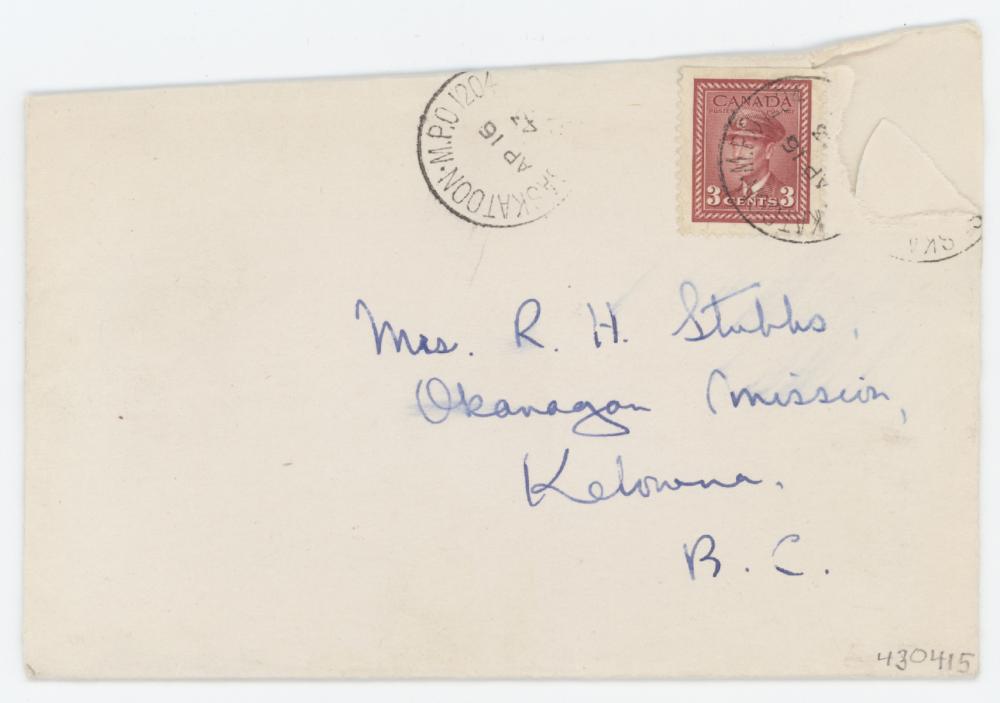 SASKATOON · M.P.O 1204
AP 15
CANADA
3 CENTS 3
AP 15
SKA
Mrs. R. H. Stubbs,
Okanagan Mission,
Kelowna.
B. C.
430415